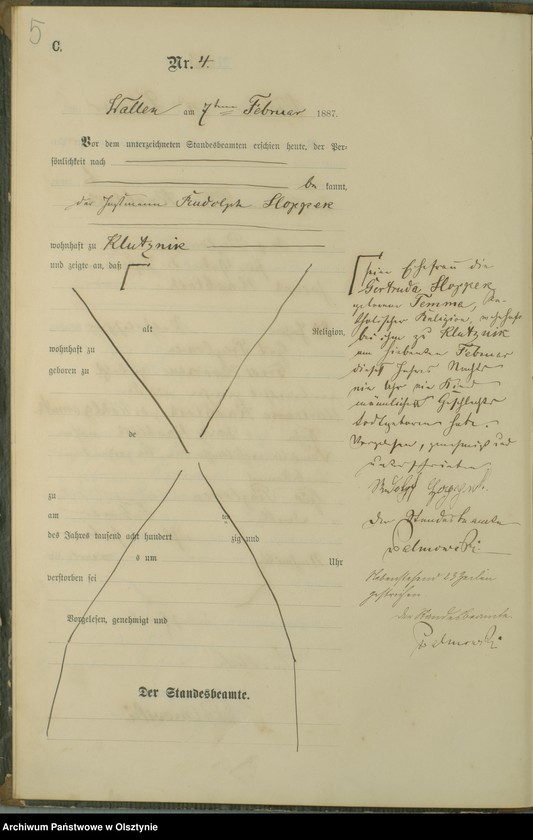 5
C.
Nr. 4.
Wallen am 7ten Februar 1887.
Vor dem unterzeichneten Standesbeamten erschien heute, der Per-
sönlichkeit nach
be kannt,
der Instmann Rudolph Hoppek
wohnhaft zu Klutznik
und zeigte an, daß
alt Religion,
wohnhaft zu
geboren zu
de
zu
am ten
des Jahres tausend acht hundert zig und
s um Uhr
verstorben sei
Vorgelesen, genehmigt und
Der Standesbeamte.
seine Ehefrau die
Gertruda Hoppek,
geborene Temma, ka-
tholischer Religion, wohnhaft
bei ihm zu Klutznik
am siebenten Februar
dieses Jahres Nachts
ein Uhr ein Kind
männlichen Geschlechts
todtgeboren habe.
Vorgelesen, genehmigt und
unterschrieben
Rudolf
Der Standesbeamte
Palmowski
Nebenstehend 13 Zeilen
gestrichen
Der Standesbeamte
Palmowski
Archiwum Państwowe w Olsztynie